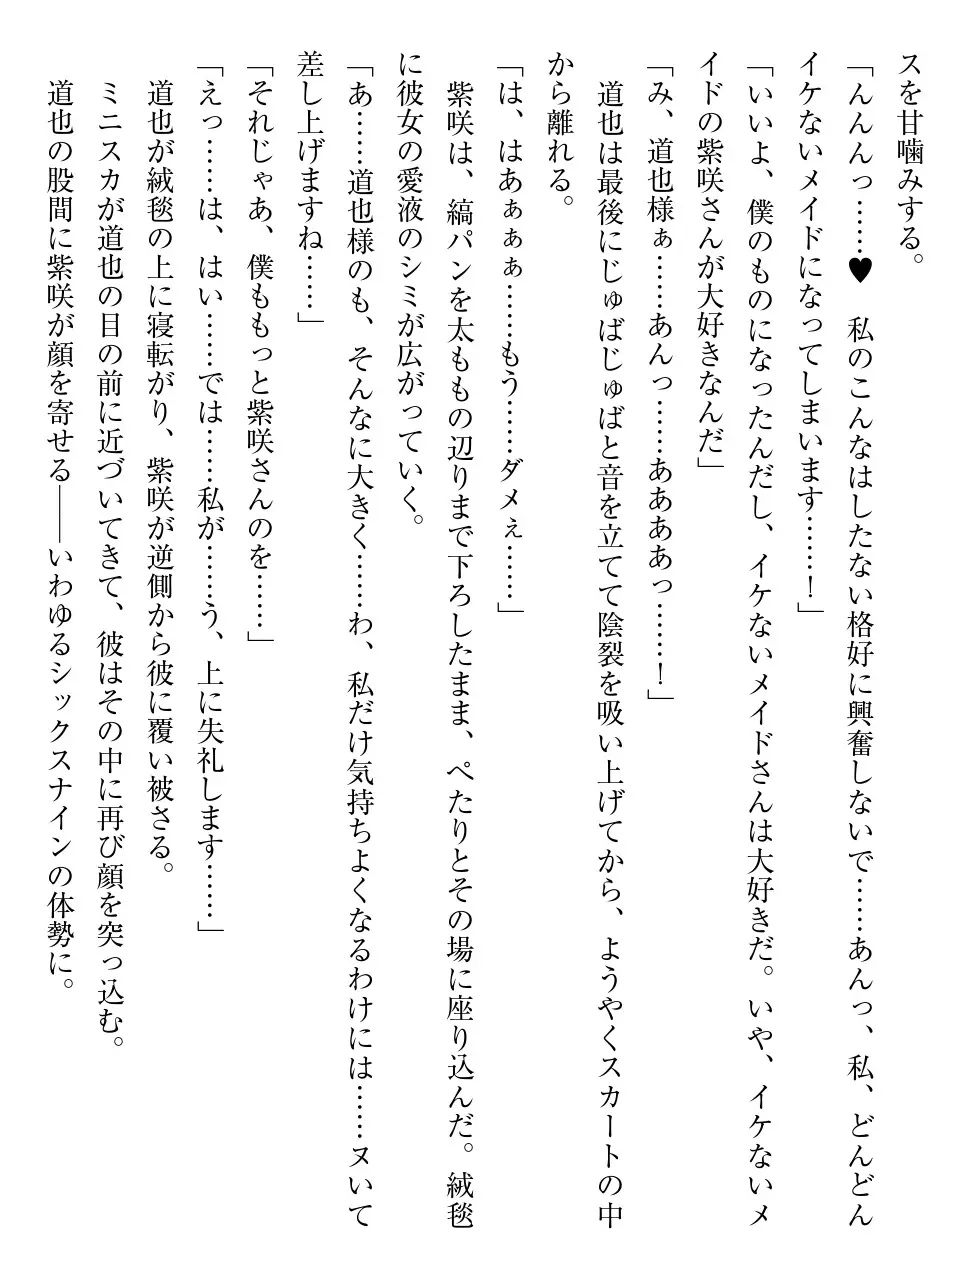 スを甘噛みする。
「んんんっ……♥　私のこんなはしたない格好に興奮しないで……あんっ、私、どんどん
イケないメイドになってしまいます……！」
「いいよ、僕のものになったんだし、イケないメイドさんは大好きだ。いや、イケないメ
イドの紫咲さんが大好きなんだ」
「み、道也様ぁ……あんっ……ああああっ……！」
　道也は最後にじゅばじゅばと音を立てて陰裂を吸い上げてから、ようやくスカートの中
から離れる。
「は、はあぁぁぁ……もう……ダメぇ……」
　紫咲は、縞パンを太ももの辺りまで下ろしたまま、ぺたりとその場に座り込んだ。絨毯
に彼女の愛液のシミが広がっていく。
「あ……道也様のも、そんなに大きく……わ、私だけ気持ちよくなるわけには……ヌいて
差し上げますね……」
「それじゃあ、僕ももっと紫咲さんのを……」
「えっ……は、はい……では……私が……う、上に失礼します……」
　道也が絨毯の上に寝転がり、紫咲が逆側から彼に覆い被さる。
　ミニスカが道也の目の前に近づいてきて、彼はその中に再び顔を突っ込む。
　道也の股間に紫咲が顔を寄せる――いわゆるシックスナインの体勢に。